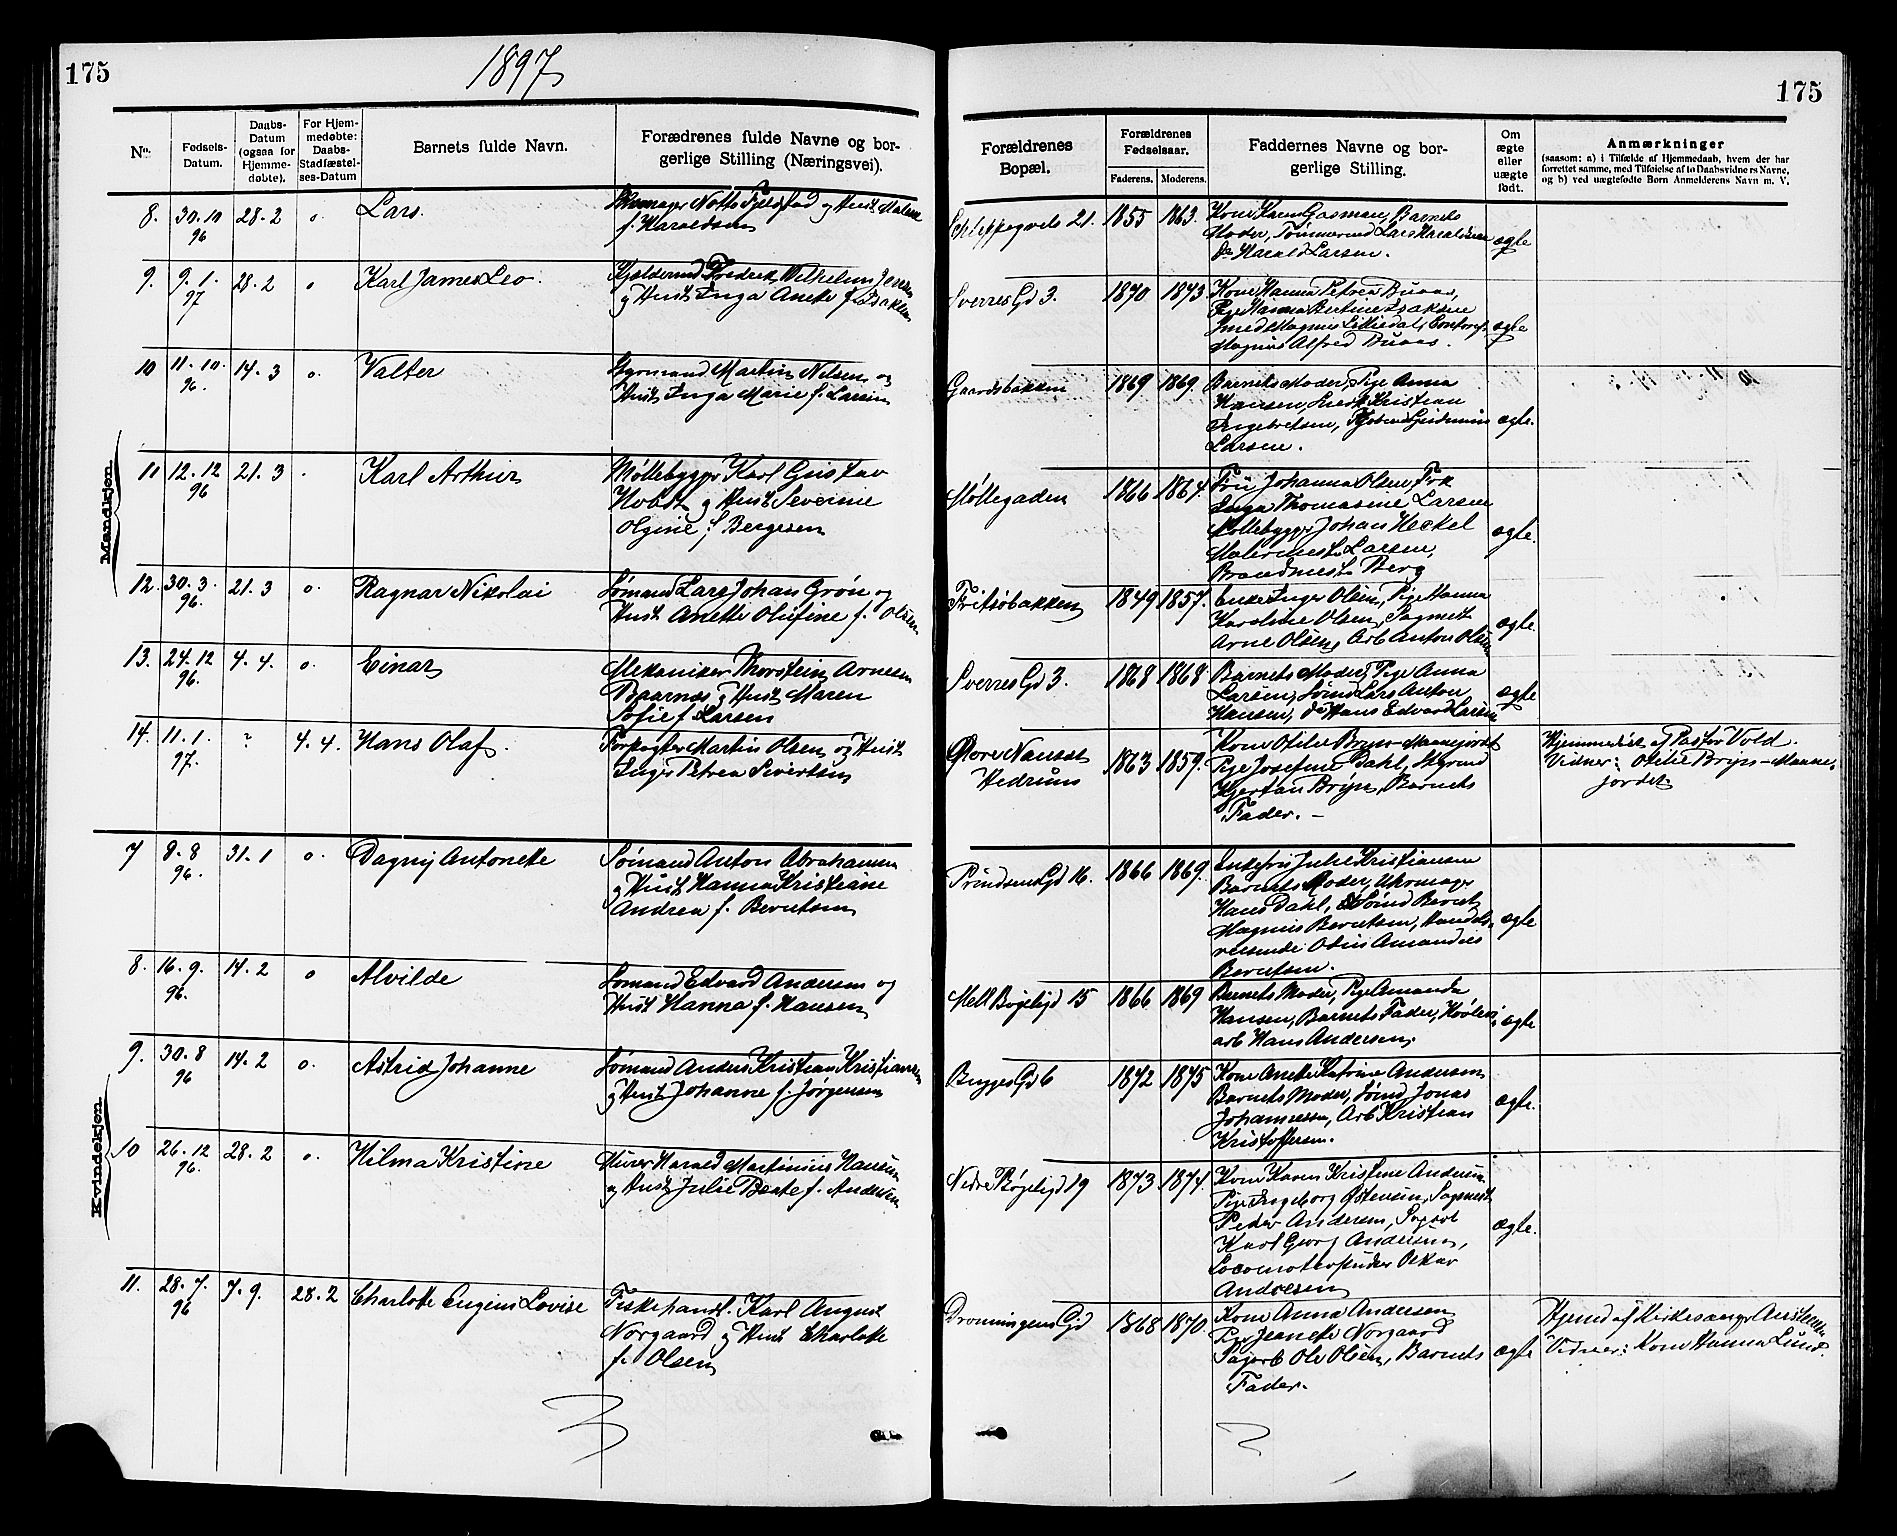 175
1897
175
No.
Fødsels-
Datum.
Daabs-
Datum
(ogsaa for
Hjemme-
døbte).
For Hjem-
medøbte:
Daabs-
Stadfæstel-
ses-Datum
Barnets fulde Navn.
Forædrenes fulde Navne og bor-
gerlige Stilling (Næringsvei).
Forældrenes
Bopæl.
Forældrenes
Fødselsaar.
Faderens.
Moderens.
Faddernes Navne og bor-
gerlige Stilling.
Om
ægte
eller
uægte
født.
Anmærkninger
(saasom: a) i Tilfælde af Hjemmedaab, hvem der har
forrettet samme, med Tilføielse af to Daabsvidners Navne,
og b) ved uægtefødte Børn Anmelderens Navn m. V.
Mandkjøn
8. 30.10 96 28.2 o Lars.
f. Haroldsen
21. 1855 1863.
Kone Karen Gasman, Barnets
Moder, Tømmermd Lars Haraldsen
do Harald Larsen.
ægte
9. 9.1. 97 28.2 o Karl James Leo.
Kjeldermd Fredrik Vilhelm Jensen
og Hust Inga Anette f. Isaksen
Sverres Gd 3. 1870 1873
Kone Hanna Petrea Buaas,
Pige Hanna Bertine Isaksen
Magnus Alfred Buaas.
ægte
10 11.10. 96. 14.3 o. Valter
Styrmand Martin Nilsen og
Hust Inga Marie f. Larsen
Gaardsbakken 1869 1869.
Barnets Moder, Pige Anna
Hansen, Kristian
Ingebretsen,
Larsen.
ægte.
11 12.12 96 21.3 . Karl Arthur
Møllebygger Karl Gustav
og Hust Severine
Olgine f. Bergesen
Møllegaden 1866 1864.
Fru Johanna Olsen, Frk
Inga Thomasine Larsen
Møllebygger Johan Heckel
Malermest. Larsen,
Brandmest. Berg
ægte.
12. 30.3. 96. 21.3 o. Ragnar Nikolai
Sømand Lars Johan Grøn og
Hust Anette Olufine f. Olsen
Fritsøbakken 1849 1857.
Enke Inger Olsen, Pige Hanna
Karoline Olsen, Sagmest
Arne Olsen, Arb Anton Olsen
ægte.
13. 24.12 96. 4.4. o. Einar
Mekaniker Thorstein Arnesen
Baarnæs og Hust Maren
Sofie f. Larsen
Sverres Gd 3. 1868 1868
Barnets Moder, Pige Anna
Larsen, Sømd Lars Anton
Hansen, do Hans Edvard Larsen
ægte
14. 11.1. 97. ? 4.4. Hans Olaf.
Forpagter Martin Olsen og Hust
Inger Petrea Sivertsen
Øvre Nanset
Hedrum
1863 1859.
Kone Otilie Bryn-Mannejordet
Pige Josefine Dahl, Styrmd
Hjertan Bryn, Barnets
Fader. -
Hjemmedøbt af Pastor Vold.
Vidner: Otilie Bryn-Manne-
jordet
Kvindekjøn
7 8.8 96. 31.1 o. Dagny Antonette
Sømand Anton Abrahamsen
og Hust Hanna Kristiane
Andrea f. Berntsen
Prindsens Gd 16. 1866 1869.
Enkefru Julie Kristiansen
Barnets Moder, Uhrmager
Hans Dahl, Sømd Bernt
Magnus Berntsen, Handels-
reisende Odin Amandus
Berntsen.
ægte
8. 16.9. 96. 14.2 o Alvilde
Sømand Edvard Andersen og
Hust Hanna f. Hansen
Mell Bøgeligd 15 1866 1869
Barnets Moder, Pige Amanda
Hansen, Barnets Fader,
arb Hans Andersen.
ægte
9. 30.8 96 14.2 o. Astrid Johanne
Sømand Anders Kristian Kristiansen
og Hust Johanne f. Jørgensen
Bugges Gd 6 1872 1875
Kone Anette Katrine Andersen
Barnets Moder, Sømd Jonas
Johannessen, Arb Kristian
Kristoffersen.
ægte.
10 26.12 96. 28.2 o. Hilma Kristine
Murer Harald Martinius Hansen
og Hust Julie Beate f. Andersen
Nedre Bøgeligd 19 1873 1874.
Kone Karen Kristine Andersen
Pige Ingeborg Østensen, Sagmest
Peder Andersen, Sagarb
Karl Georg Andersen,
Locomotivpudser Oskar
Andresen
ægte.
11. 28.7. 96 7.9. 28.2 Charlotte Eugenie Lovise
Fiskehandl. Karl August
Norgaard og Hust Charlotte
f. Olsen
Dronningens Gd 1868 1870.
Kone Anna Andersen
Pige Jeanette Norgaard
Sagarb Ole Olsen, Barnets
Fader.
ægte
Hjemd af Kirkesanger
Vidner: Kone Hanna Lund.